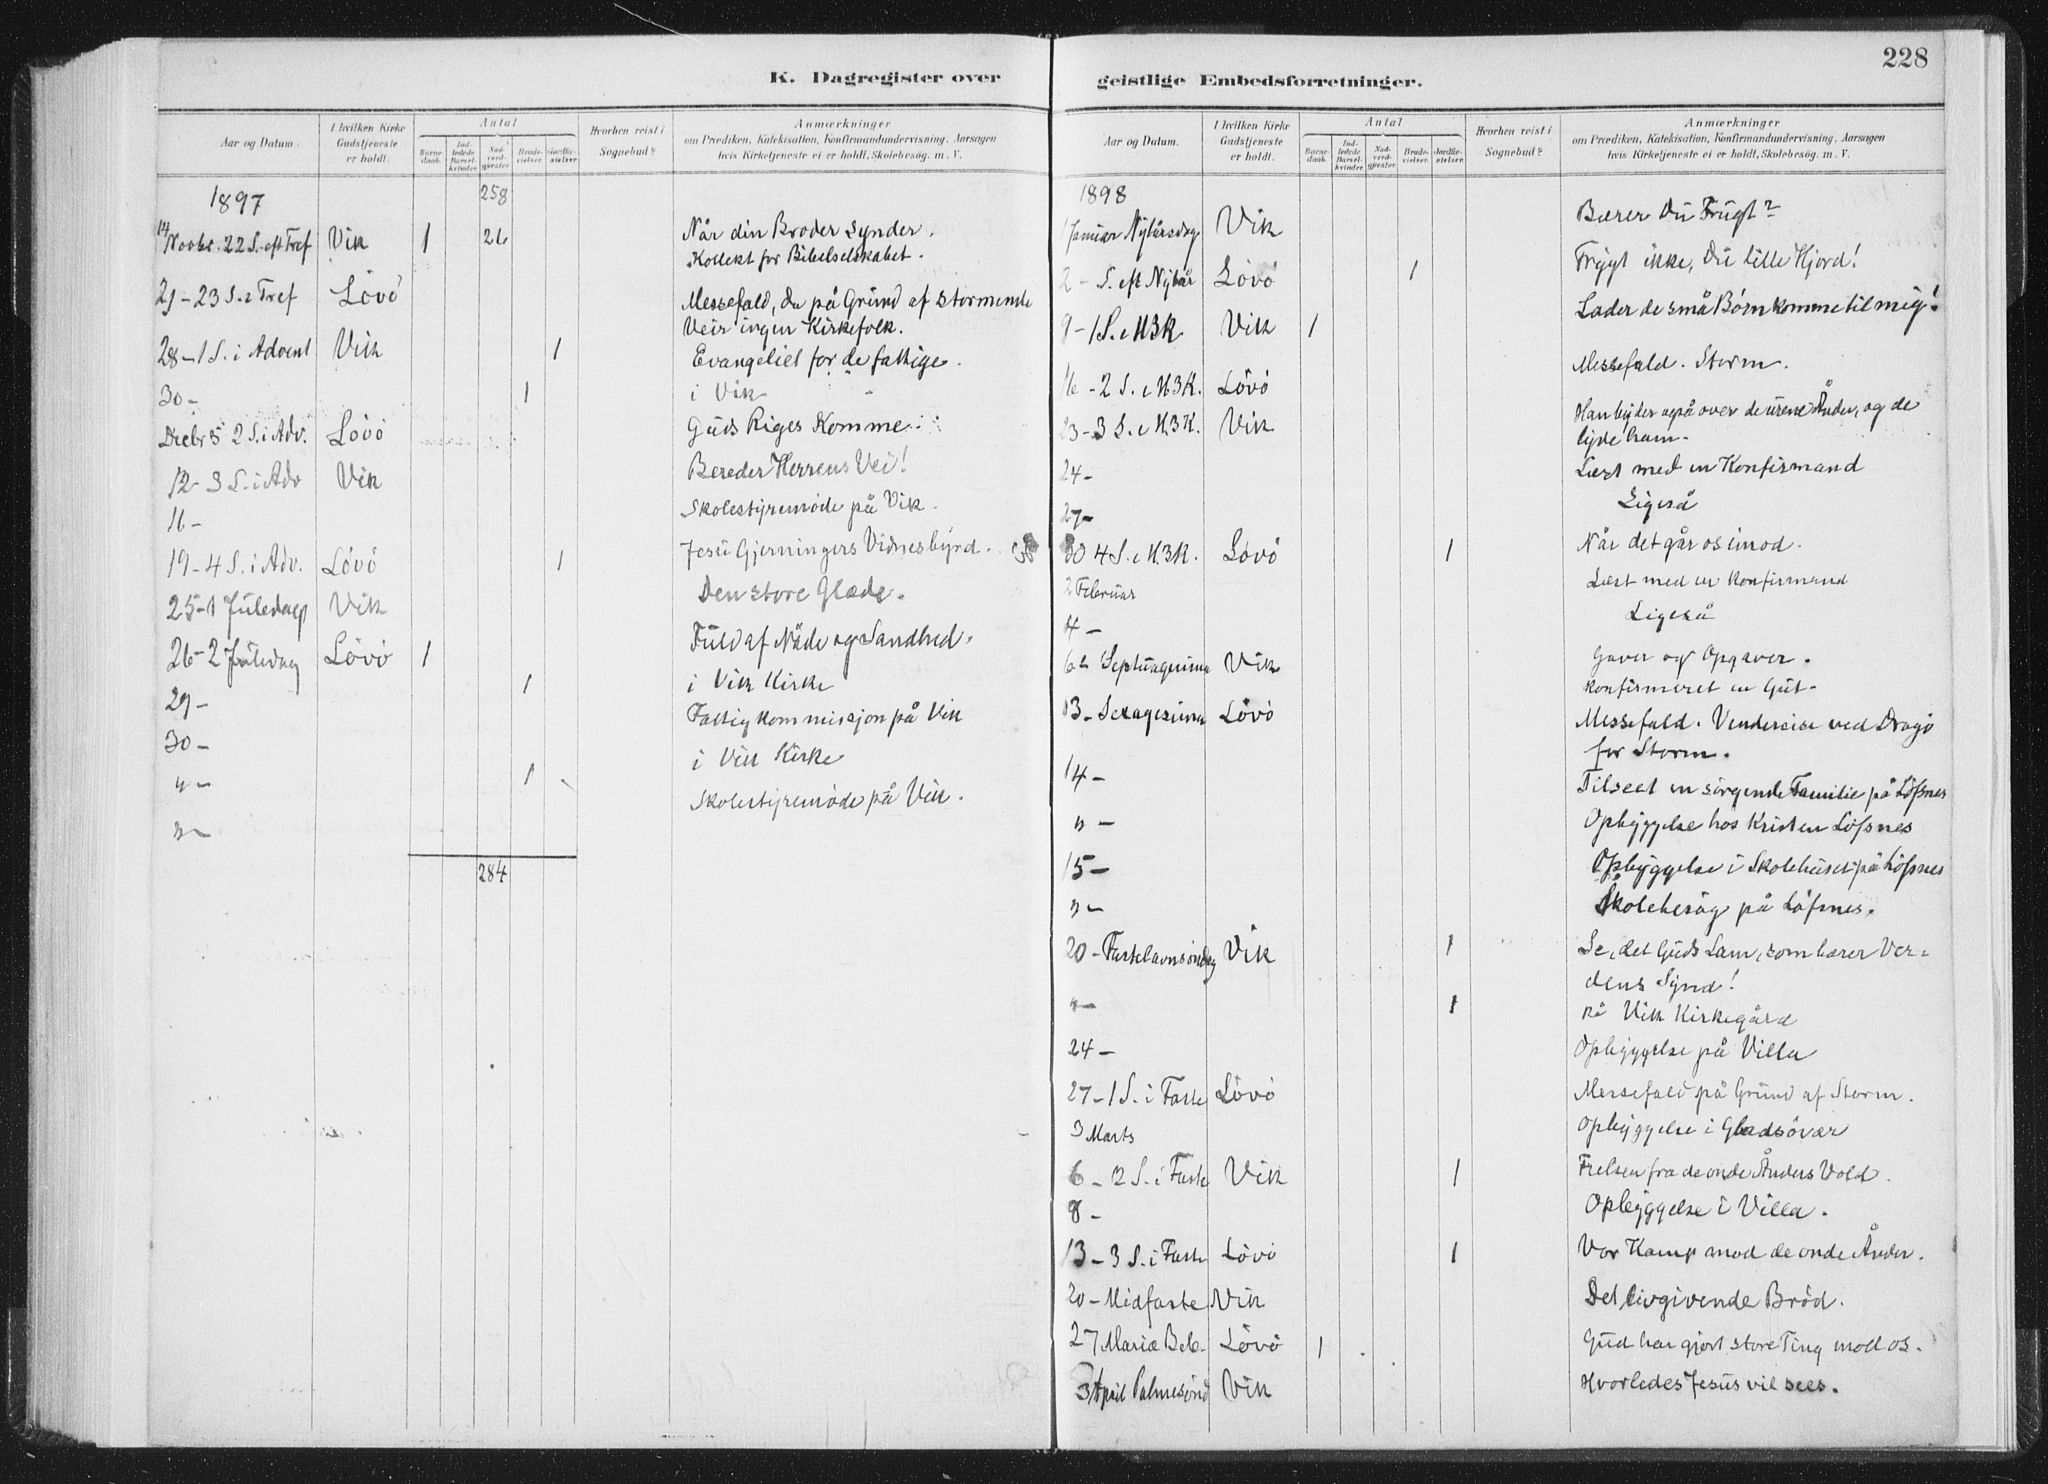 K. Dagregister over
Aar og Datum.
I hvilken Kirke Gudstjeneste er holdt.
Antal
Barne-daab.
Ind-ledede Barsel-kvinder
Nad-verd-gjester
Brude-vielser.
Jordfæ-stelser.
Hvorhen reist i Sognebud?
Anmærkninger
om Prædiken, Katekisation, Konfirmandundervisning, Aarsagen
hvis Kirketjeneste ei er holdt, Skolebesøg. m. V.
1897 258
14 Novbr. 22 S. eft Tref Vik 1 26 Når din Broder synder.
Kollekt for Bibelselskabet.
21 - 23 S. e Tref Lövö Messefald, da på Grund af stormende
Veir ingen Kirkefolk.
28 - 1 S. i Advent Vik 1 Evangeliet for de fattige.
30 - 1 i Vik
Decbr 5 2 S. i Adv. Lövö Guds Riges Komme.
12 - 3 S. i Adv Vik Bereder Herrens Vei!
16 - Skolestyremöde på Vik.
19 - 4 S. i Adv. Lövö 1 Jesu Gjerningers Vidnesbyrd.
25 - 1 Juledag Vik Den store Glæde.
26 - 2 Juledag Lövö 1 Fuld af Nåde og Sandhed.
29 - 1 i Vik Kirke
30 - Fattigkommissjon på Vik
" - 1 i Vik Kirke
" - Skolestyremöde på Vik.
284
228
geistlige Embedsforretninger.
Aar og Datum.
I hvilken Kirke Gudstjeneste er holdt.
Antal
Barne-daab.
Ind-ledede Barsel-kvinder
Nad-verd-gjester
Brude-vielser.
Jordfæ-stelser.
Hvorhen reist i Sognebud?
Anmærkninger
om Prædiken, Katekisation, Konfirmandundervisning, Aarsagen
hvis Kirketjeneste ei er holdt, Skolebesøg. m. V.
1898
1 Januar Nytårsdag Vik Bærer Du Frugt?
2 - S. eft Nytår Lövö 1 Frygt ikke, Du lille Hjord!
9 - 1 S. e H3K Vik 1 Lader de små Börn komme til mig!
16 - 2 S. e H3K. Lövö Messefald. Storm.
23 - 3 S. e H3K. Vik Han byder også over de urene Ånder, og de
lyde ham.
24 - Læst med en Konfirmand
27 - Ligeså
30 4 S. e H.3K. Lövö 1 Når det går os imod.
2 Februar Læst med en Konfirmand
4 - Ligeså
6 - Septuagesima Vik Gaver og Opgaver.
Konfirmeret en Gut.
13 - Sexagesima Lövö Messefald. Vendereise ved Dragö
for Storm.
14 - Tilseet en sörgende Familie på Löfsnes
" - Opbyggelse hos Kristen Löfsnes
15 - Opbyggelse i Skolehuset på Löfsnes
" - Skolebesög på Löfsnes.
20 - Fastelavnsöndag Vik 1 Se, det Guds Lam, som bærer Ver-
dens Synd!
" - 1 På Vik Kirkegård
24 - Opbyggelse på Villa
27 - 1 S. i Faste Lövö Messefald på Grund af Storm.
3 Marts Opbyggelse i Gladsövær
6 - 2 S. i Faste Vik 1 Frelsen fra de onde Ånders Vold.
8 - Opbyggelse i Villa.
13 - 3 S. i Faste Lövö 1 Vor Kamp mod de onde Ånder.
20 - Midfaste Vik Det livgivende Bröd.
27 Mariæ Beb. Lövö 1 Gud har gjort store Ting mod os.
3 April Palmesönd Vik Hvorledes Jesus vil sees.